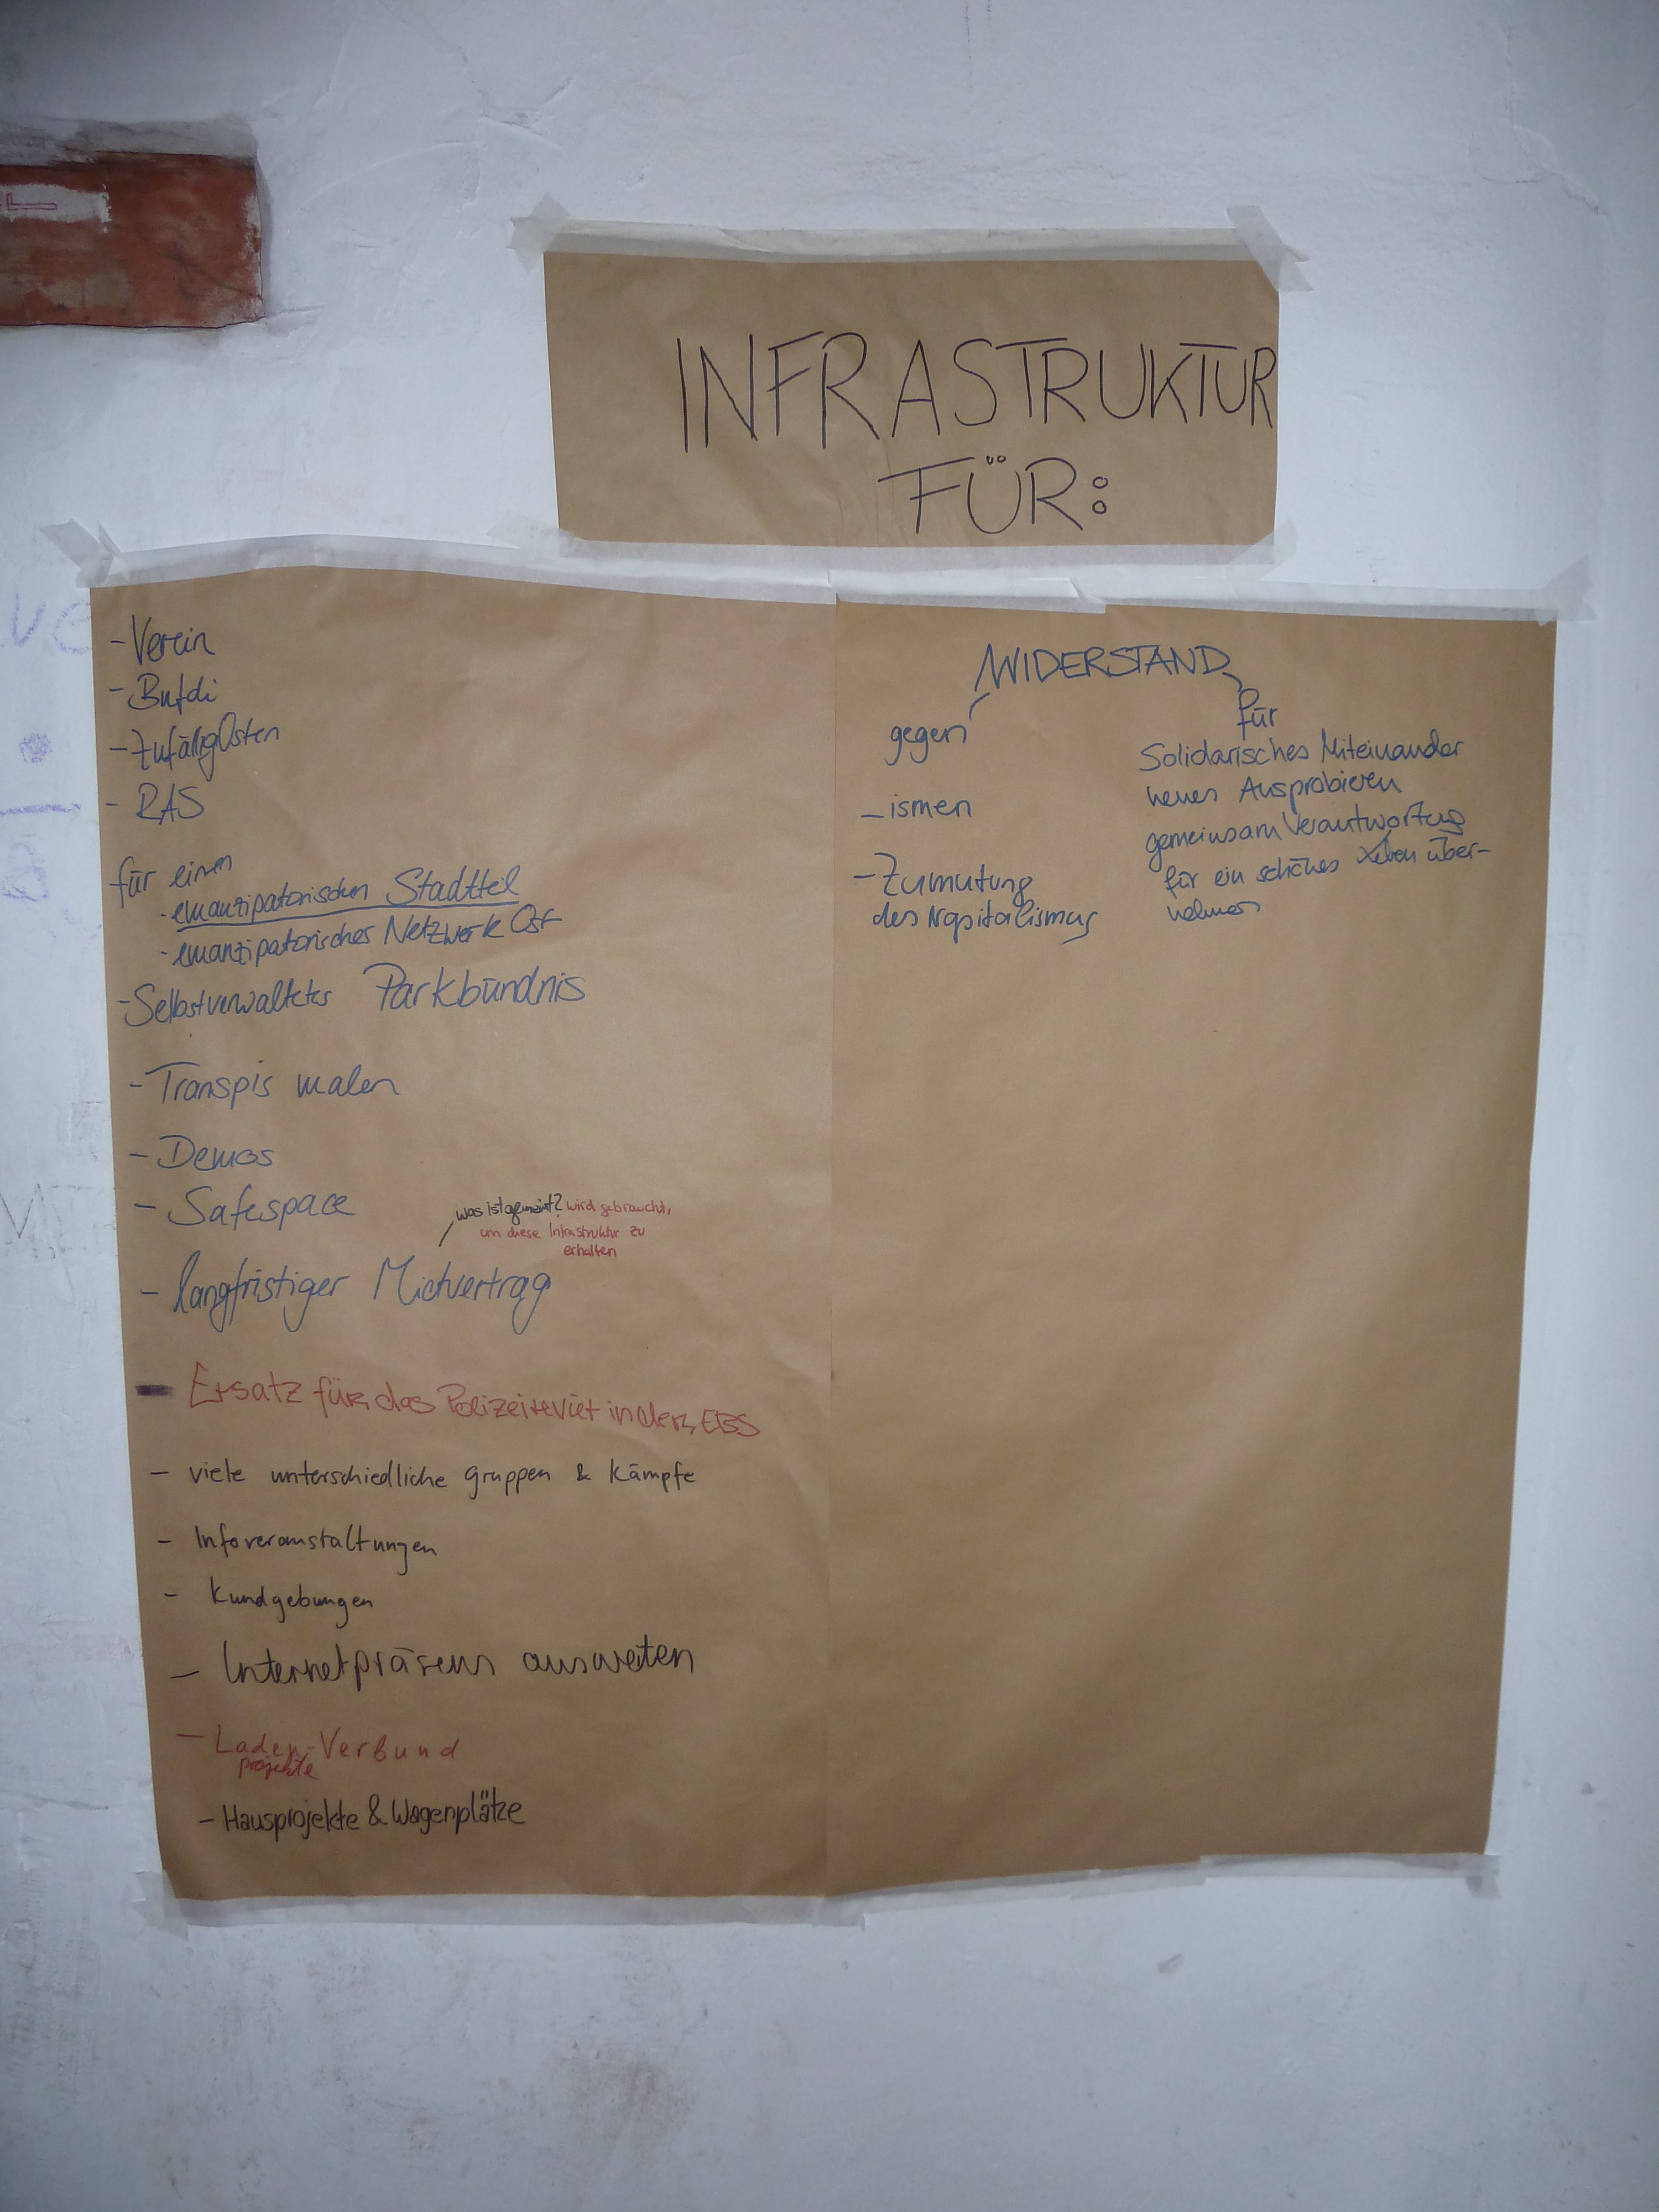 INFRASTRUKTUR
FÜR:
- Verein
- Bufdi
- ZufälligOsten
- RAS
für einen
· emanzipatorischen Stadtteil
· emanzipatorisches Netzwerk Ost
- Selbstverwaltetes Parkbündnis
- Transpis malen
- Demos
- Safespace
was ist gemeint? wird gebraucht,
um diese Infrastruktur zu
erhalten
- langfristiger Mietvertrag
- Ersatz für das Polizeirevier in der EBS
- viele unterschiedliche gruppen & Kämpfe
- Infoveranstaltungen
- Kundgebungen
- Internetpräsens ausweiten
- Laden-Verbund
projekte
- Hausprojekte & Wagenplätze
WIDERSTAND
gegen
- ismen
- Zumutung
des Kapitalismus
für
Solidarisches Miteinander
neues Ausprobieren
gemeinsam Verantwortung
für ein schönes Leben über-
nehmen